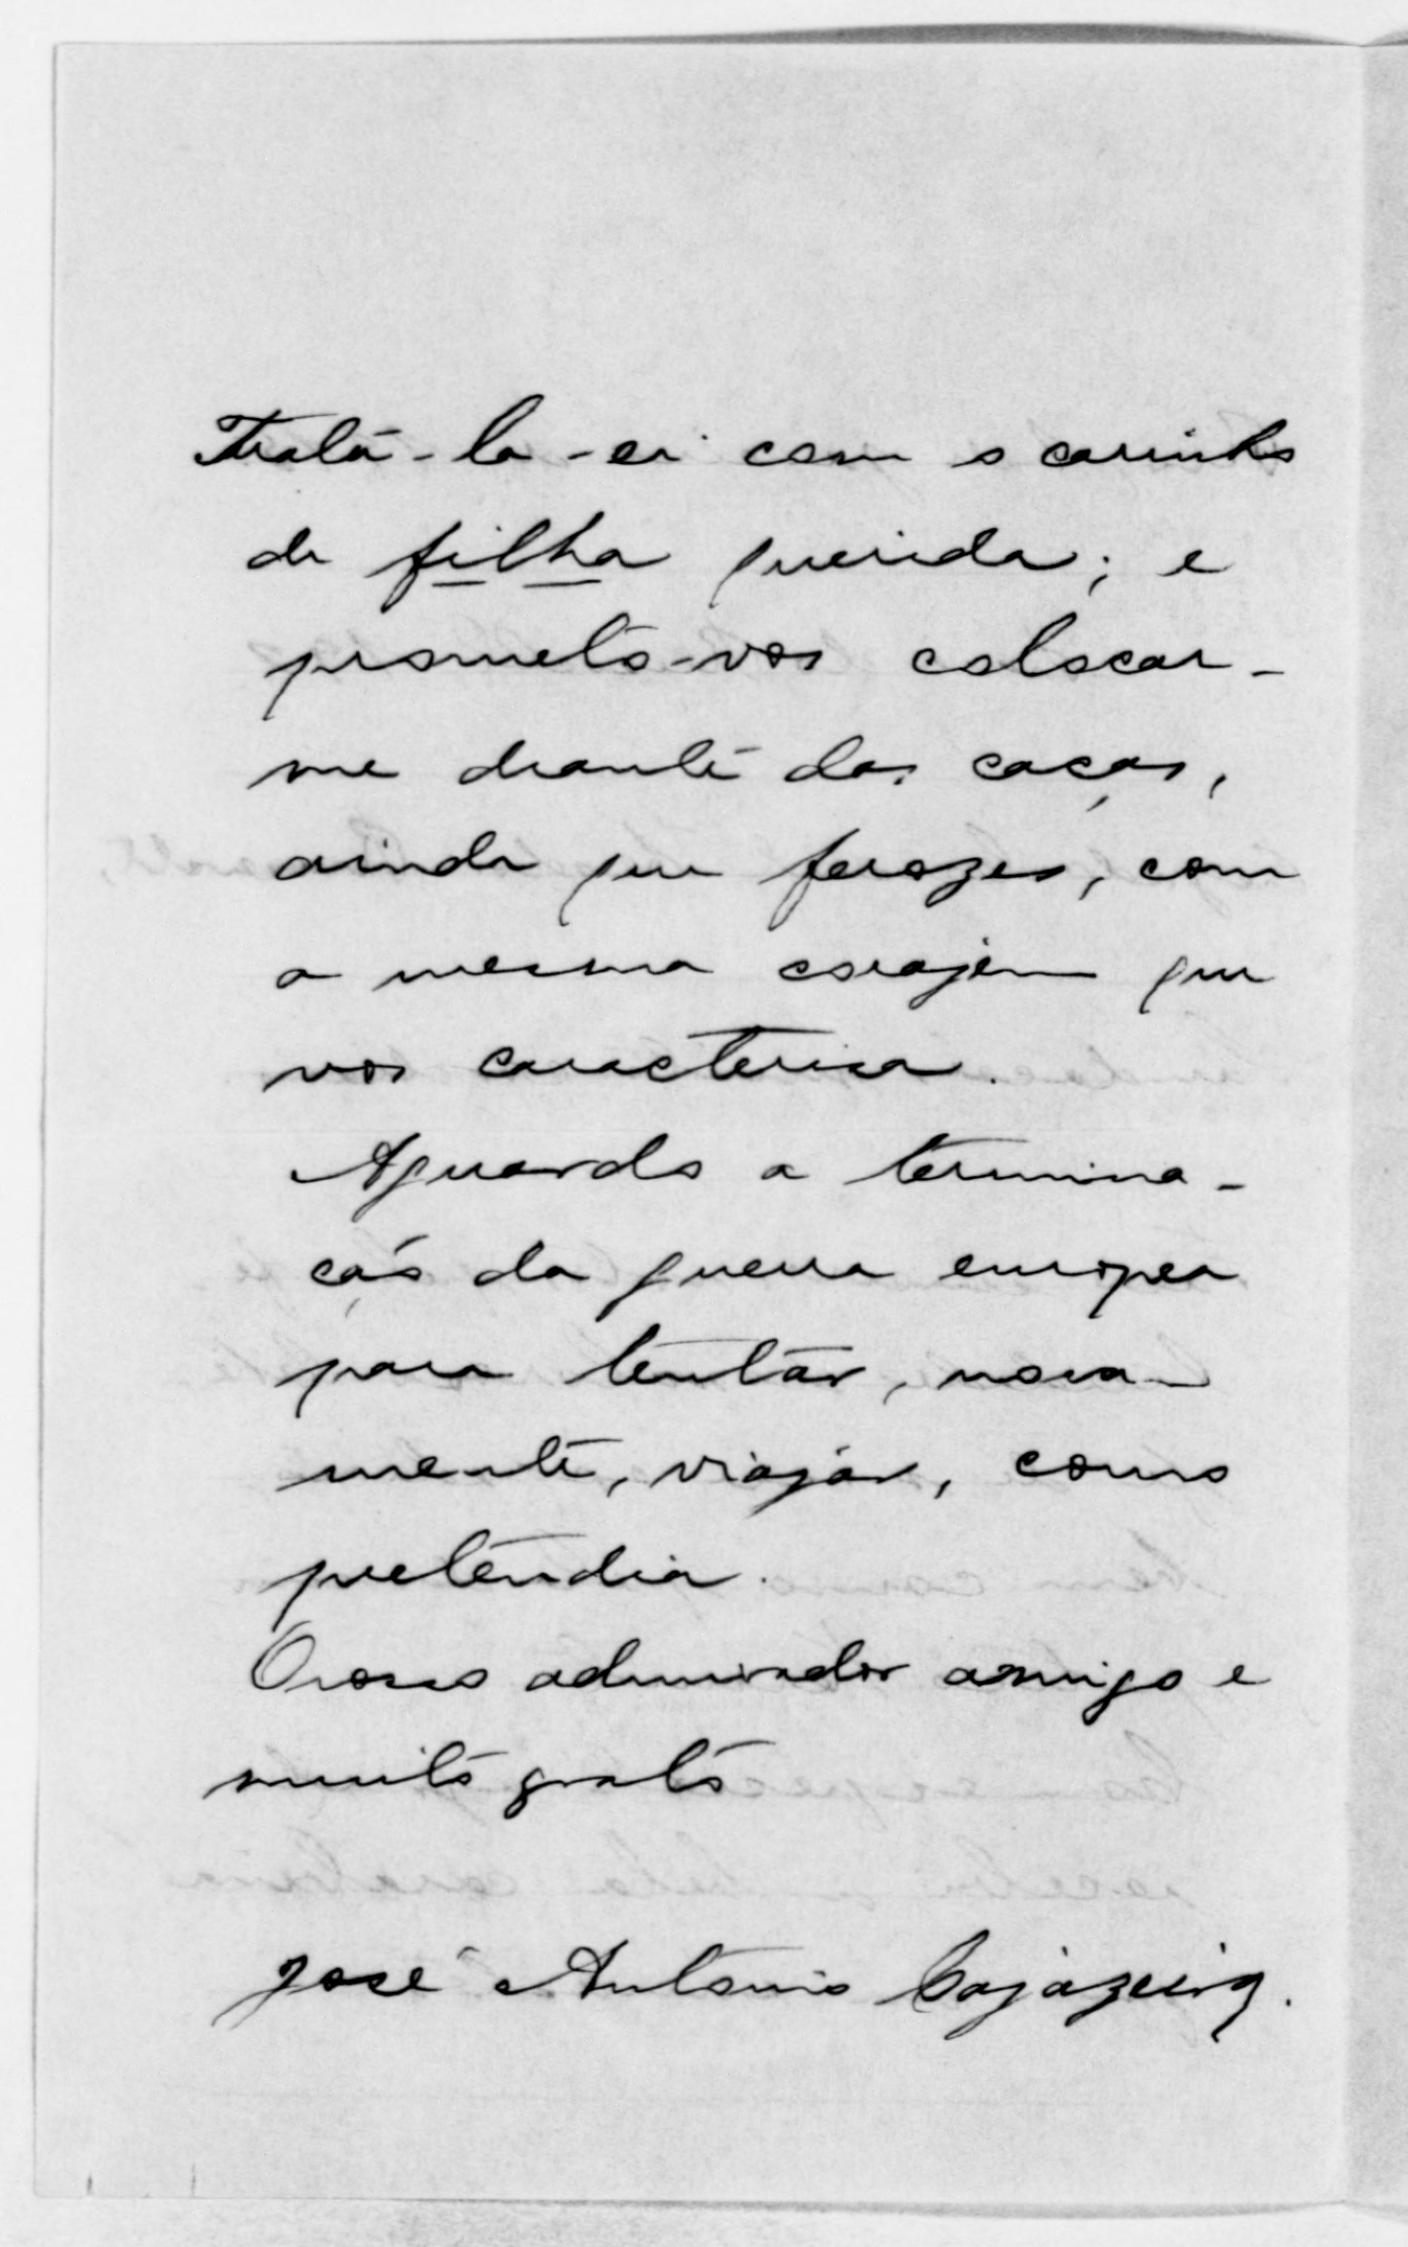 Tratá-la-ei com o carinho
de filha querida; e
prometo-vos colocar-
me deante das caças,
ainda que ferozes, com
a mesma corajem que
vos caracterisa.
Aguardo a termina-
ção da guerra europea
para tentar, nova-
mente, viajar, como
pretendia.
O vosso admirador amigo e
muito grato
José Antonio Cajazeira.